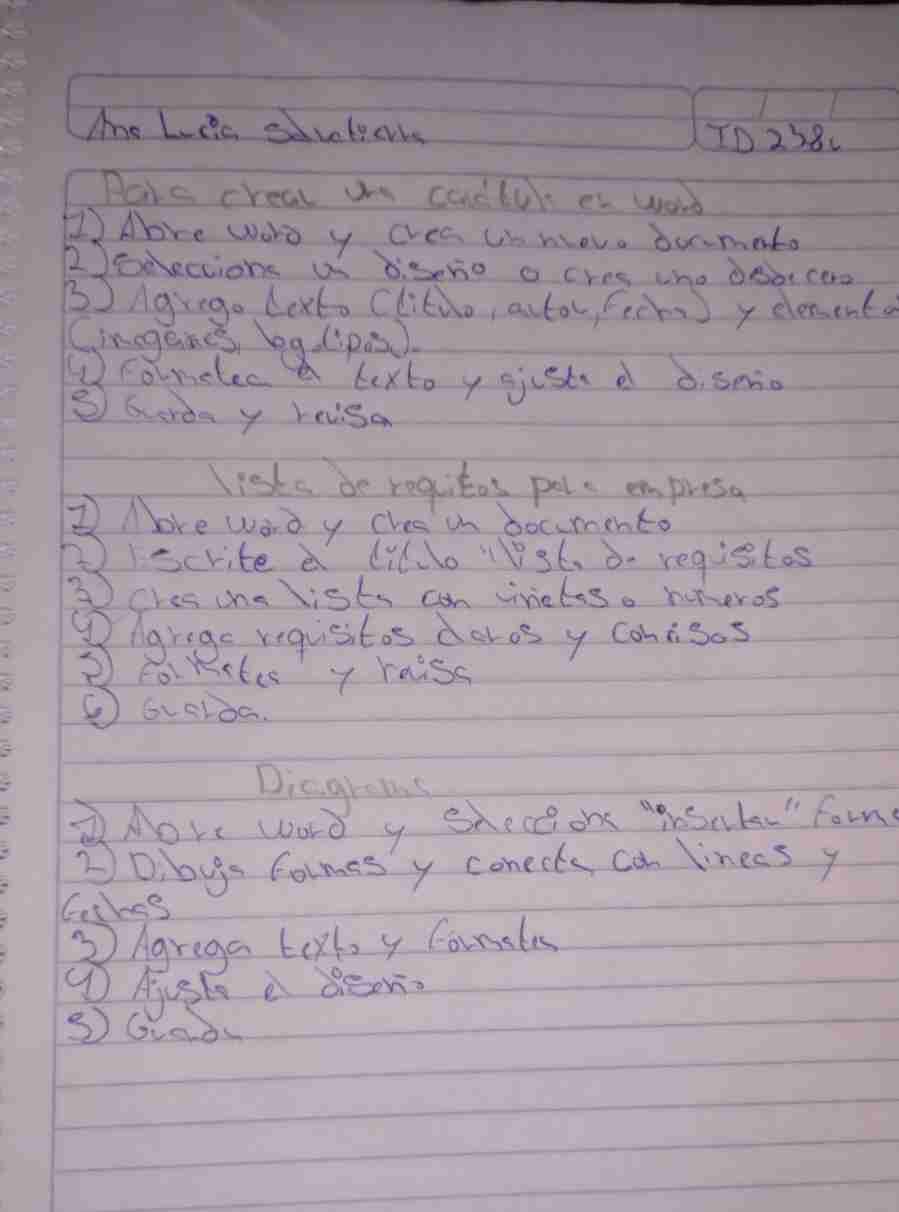 Ana Lucia
TD 238c
Para crear un caratula en word
1) Abre word y crea un nuevo documento
2) Selecciona un diseño o crea uno desde cero
3) Agrega texto (titulo, autor, fecha) y elemento
(imagenes, logotipos).
4) Formatea el texto y ajusta el diseño
5) Guarda y revisa
lista de requitos para empresa
1) Abre word y crea un documento
2) Escribe el titulo "lista de requisitos
3) crea una lista con viñetas o números
4) Agrega requisitos claros y concisos
5) Formatea y revisa
6) Guarda.
Diagrama
1) Abre word y selecciona "insertar" forma
2) Dibuja formas y conecta con lineas y
flechas
3) Agrega texto y formatea
4) Ajusta el diseño
5) Guarda